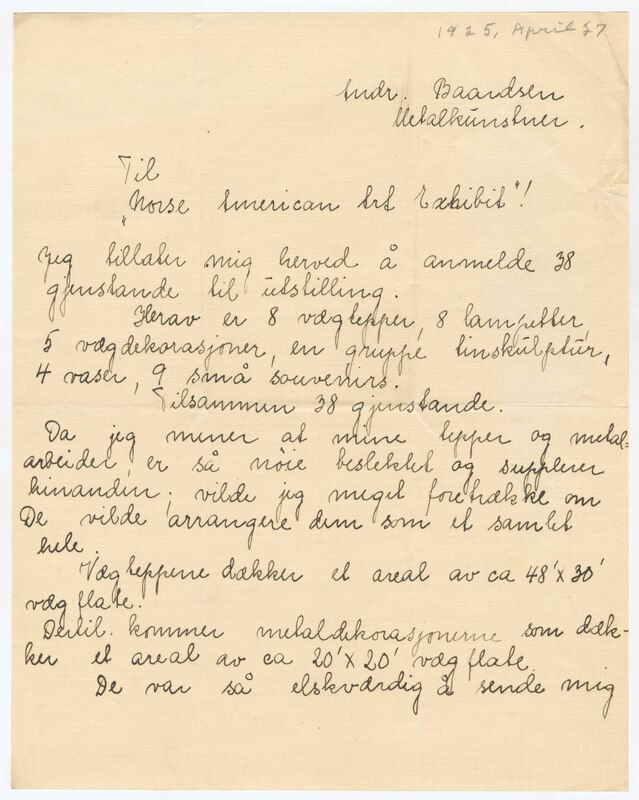 1925, April 27
Andr. Baardsen
Metalkunstner.
Til
"Norse American Art Exhibit"!
Jeg tillater mig herved å anmelde 38
gjenstande til utstilling.
Herav er 8 vægtepper, 8 lampetter,
5 vægdekorasjoner, en gruppe tinskulptur,
4 vaser, 9 små souvenirs.
Tilsammen 38 gjenstande.
Da jeg mener at mine tepper og metal-
arbeider, er så nöie beslektet og supplerer
hinanden, vilde jeg meget foretrække om
De vilde arrangere dem som et samlet
hele.
Vægteppene dækker et areal av ca 48'X30'
vægflate.
Dertil kommer metaldekorasjonerne som dæk-
ker et areal av ca 20'X20' vægflate.
De var så elskværdig å sende mig